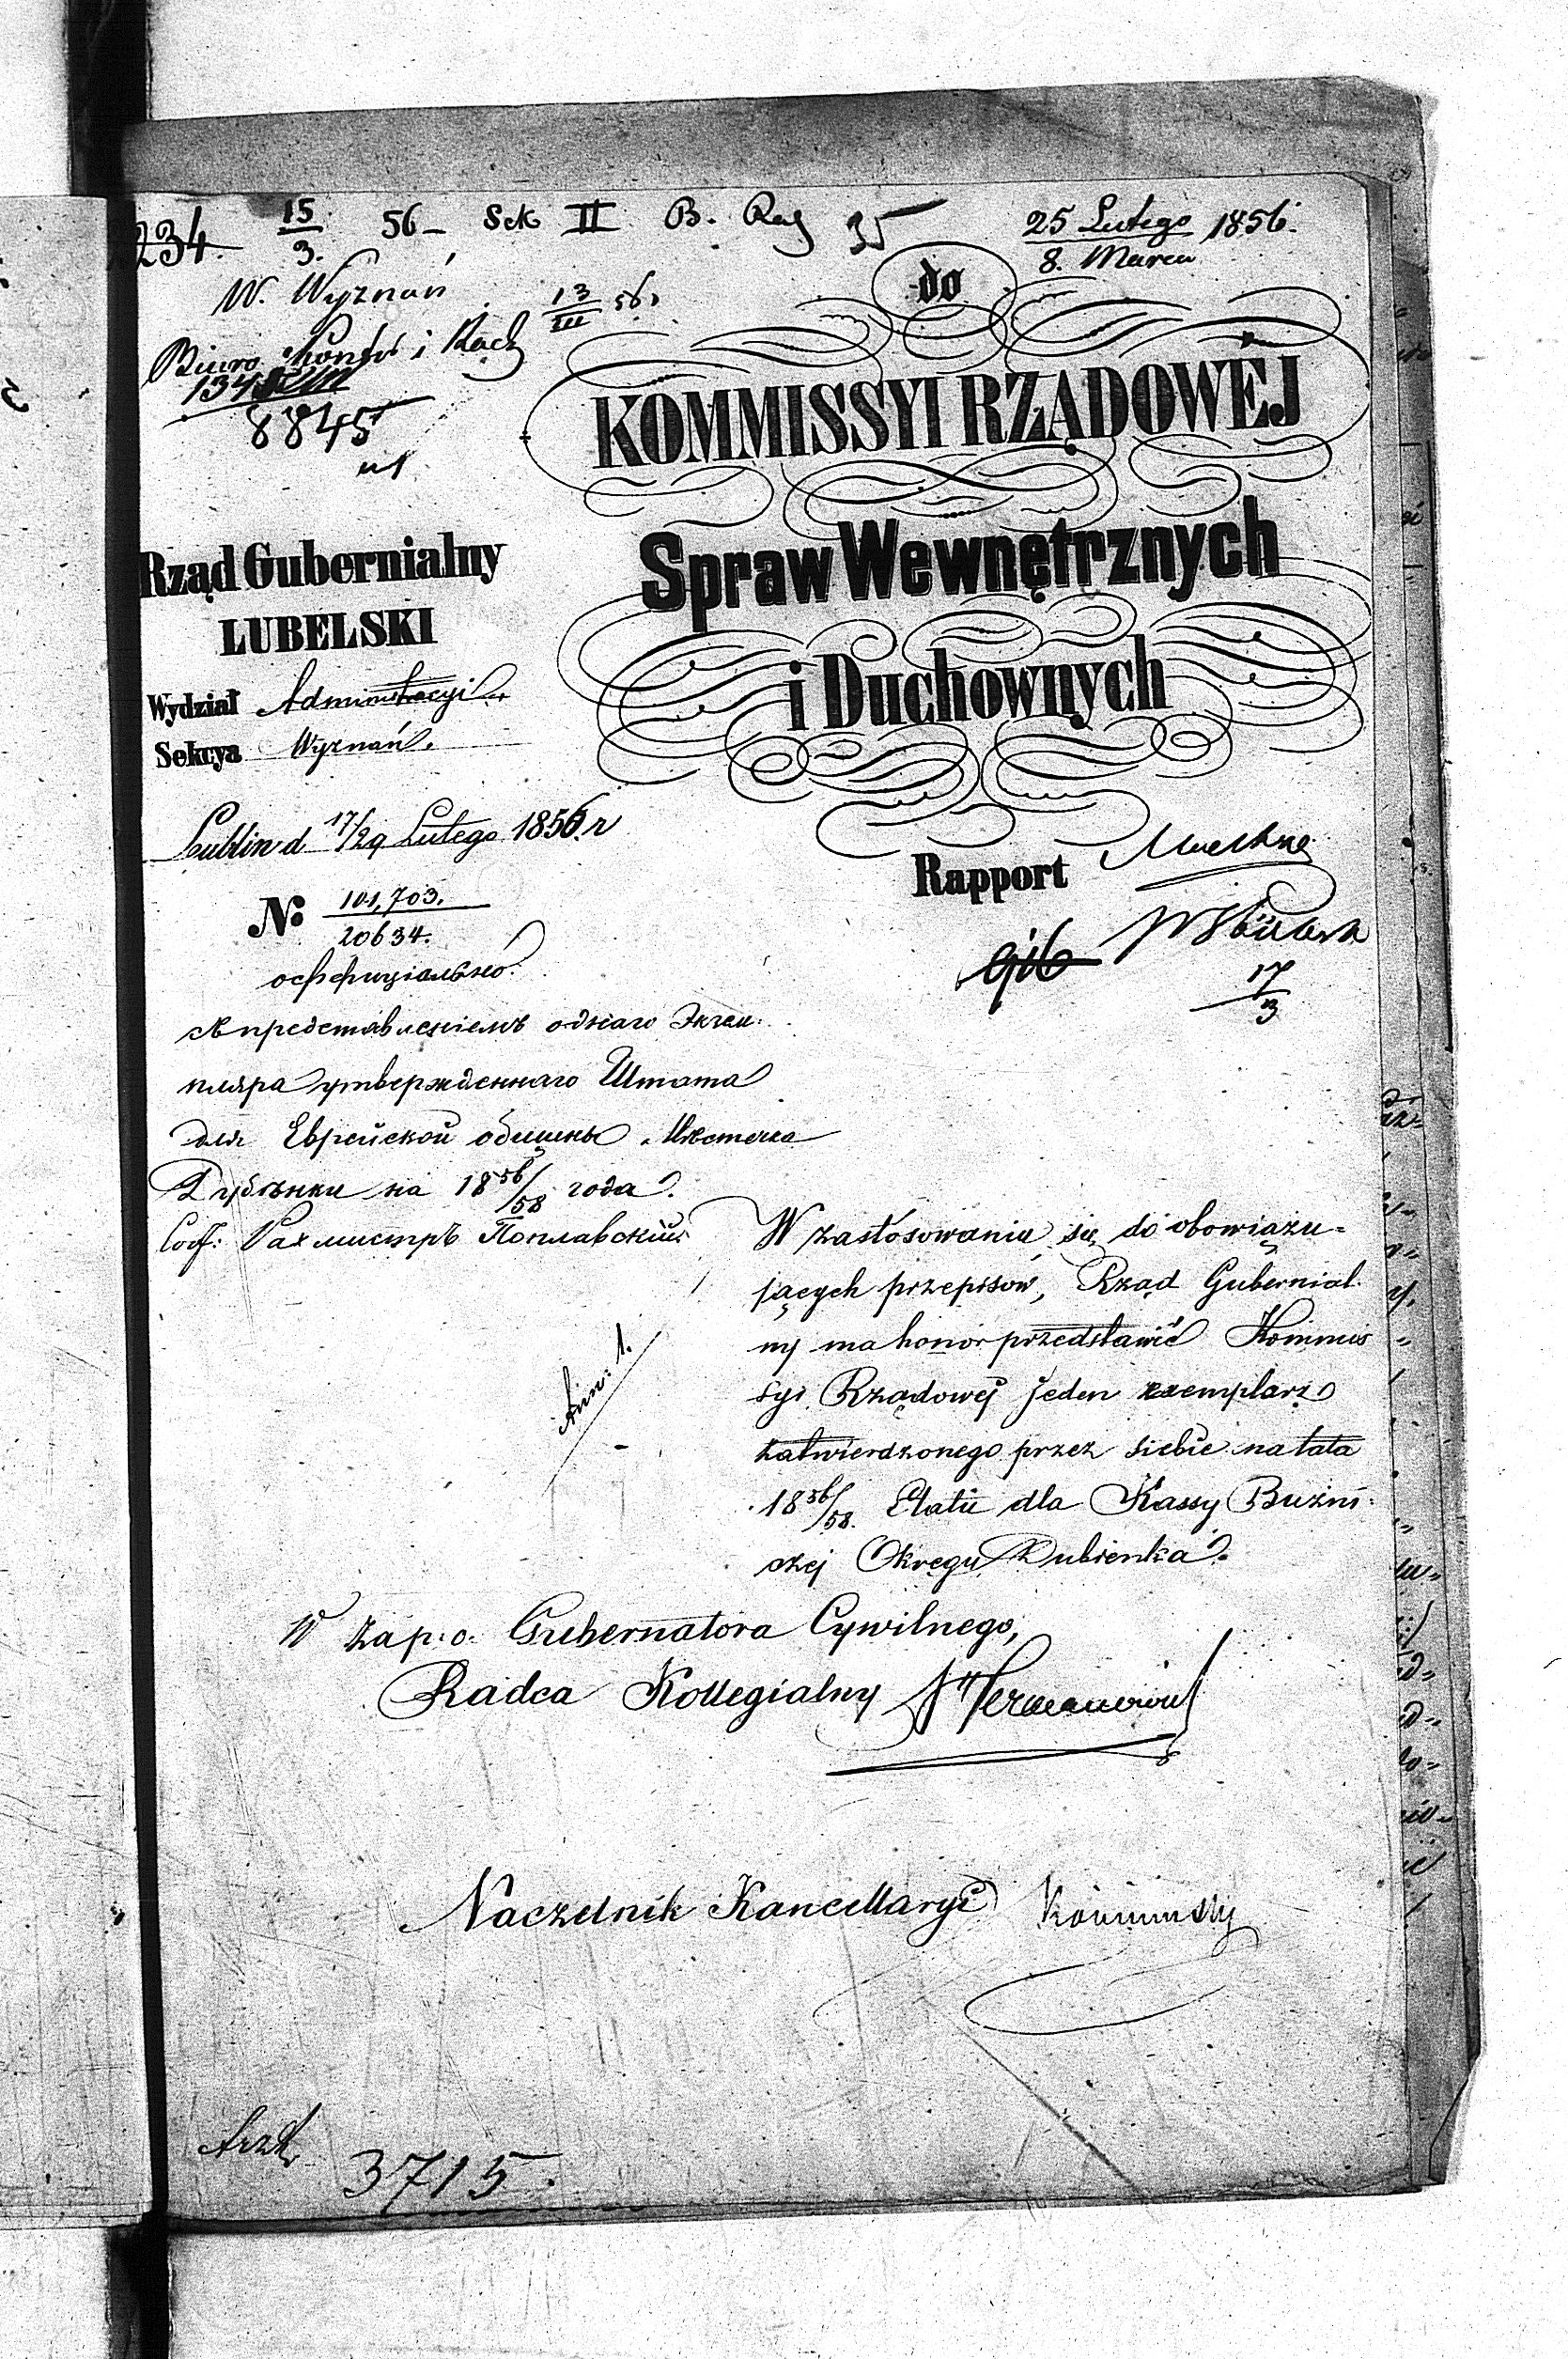 234. 15/3. 56 – Sek II B. Rej 35
25 Lutego 1856.
8. Marca
W. Wyznań 13/III 56.
Biuro i Rach
8845
do
KOMMISSYI RZĄDOWÉJ
Spraw Wewnętrznych
i Duchownych
Rapport
17/3
Rząd Gubernialny
LUBELSKI
Wydział Administracyi
Sekcya Wyznań.
Lublin d 17/29 Lutego 1856 r
N: 101,703.
20634.
оффиціально.
съ представленіемъ однаго Экзем:
пляра утвержденнаго Штата
для Еврейской общины Мѣстечка
Дубѣнки на 1856/58 года.
Рахмистръ Поплавскій
W zastosowaniu się do obowiązu=
jących przepisów, Rząd Gubernial:
ny ma honor przedstawić Kommis
syi Rządowej jeden exemplarz
zatwierdzonego przez siebie na lata
1856/58. Etatu dla Kassy Bużni:
czej Okręgu Dubienka.
W za p. o. Gubernatora Cywilnego,
Radca Kollegialny
Naczelnik Kancellaryi
3715.